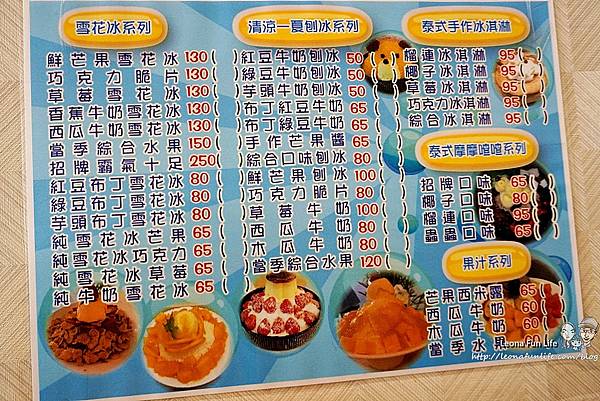 雪花冰系列
鮮芒果雪花冰 130( )
巧克力脆片 130( )
草莓雪花冰 130( )
香蕉牛奶雪花冰 130( )
西瓜牛奶雪花冰 130( )
當季綜合水果 150( )
招牌霸氣十足 250( )
紅豆布丁雪花冰 80( )
綠豆布丁雪花冰 80( )
芋頭布丁雪花冰 80( )
純雪花冰芒果 65( )
純雪花冰巧克力 65( )
純雪花冰草莓 65( )
純牛奶雪花冰 65( )
清涼一夏刨冰系列
紅豆牛奶刨冰 50( )
綠豆牛奶刨冰 50( )
芋頭牛奶刨冰 50( )
布丁紅豆牛奶 65( )
布丁綠豆牛奶 65( )
手作芒果醬 65( )
綜合口味刨冰 80( )
鮮芒果刨冰 100( )
巧克力刨冰 80( )
草莓牛奶 100( )
西瓜牛奶 80( )
木瓜牛奶 80( )
當季綜合水果 120( )
泰式手作冰淇淋
榴連冰淇淋 95( )
椰子冰淇淋 95( )
草莓冰淇淋 95( )
巧克力冰淇淋 95( )
綜合冰淇淋 95( )
泰式摩摩喳喳系列
招牌口味 65( )
椰子口味 80( )
榴連口味 95( )
蟲蟲口味 65( )
果汁系列
芒果西米露 65( )
西瓜牛奶 60( )
木瓜牛奶 60( )
當季水果
Leona Fun Life
http://leonafunlife.com/blog